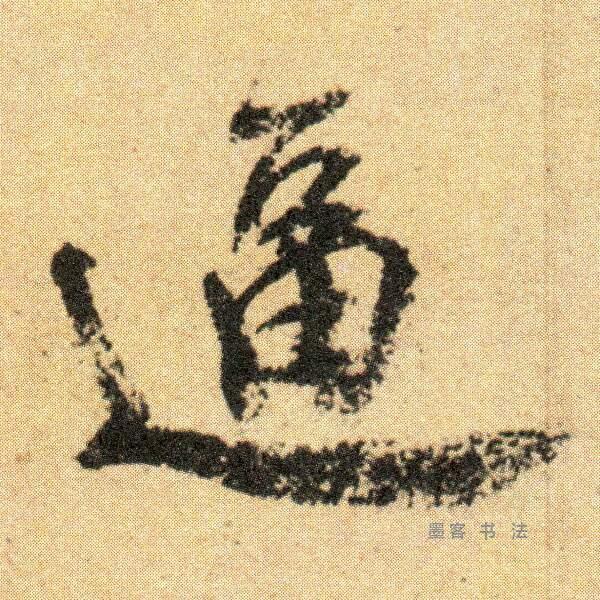 逼
墨客书法